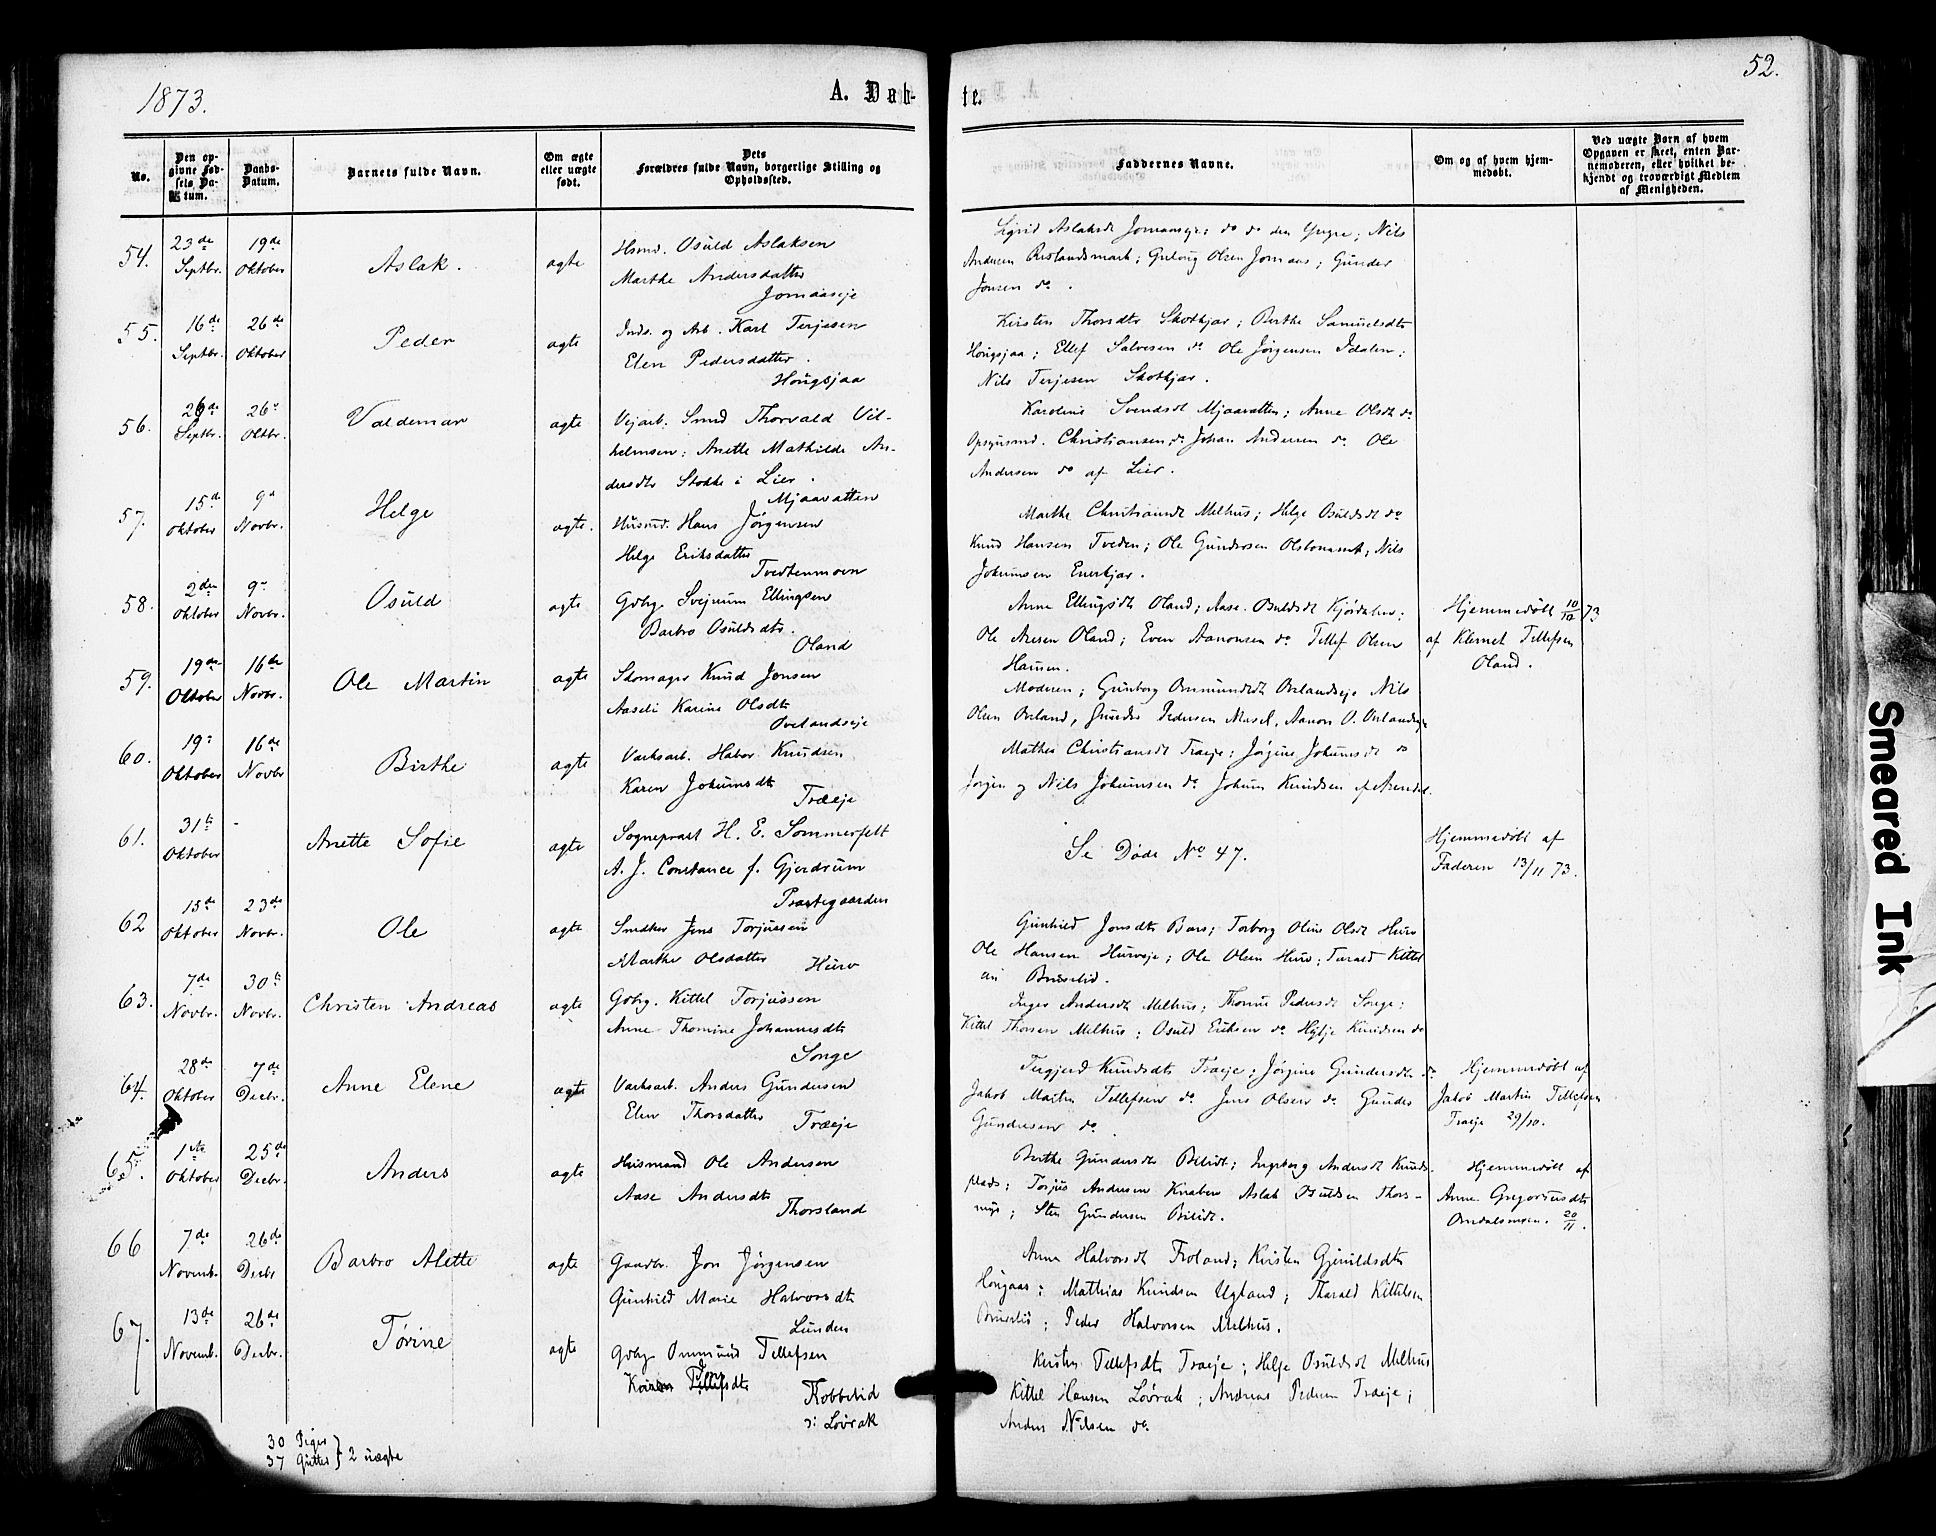 1873.
A. Døb-
te.
52.
No.
Den op-
givne Fød-
sels Da-
tum.
Daabs-
Datum.
Barnets fulde Navn.
Om ægte
eller uægte
født.
Dets
Forældres fulde Navn, borgerlige Stilling og
Opholdssted.
Faddernes Navne.
Om og af hvem hjem-
medøbt.
Ved uægte Børn af hvem
Opgaven er skeet, enten Bar-
nemoderen, eller hvilket be-
kjendt og troværdigt Medlem
af Menigheden.
54.
23de
Septbr.
19de
Oktober
Aslak.
ægte
Hsmd. Osuld Aslaksen
Marthe Andersdatter
Jomaaseje
Sigrid Aslaksdt Jomaaseje; do do den Yngre; Nils
Andersen; Olsen Jomaas; Gunder
Jonsen do.
55.
16de
Septbr.
26de
Oktober
Peder
ægte
Inds. og Arb. Karl Terjesen
Elen Pedersdatter.
Hougsjaa
Kirsten Thorsdtr Skotkjær; Berthe Samuelsdtr
Hougsjaa; Ellef Salvesen do Ole Jørgensen Idalen;
Nils Terjesen Skotkjær.
56.
26de
Septbr.
26"
Oktbr.
Valdemar
ægte
Vejarb. Smed Thorvald Vil-
helmsen; Anette Mathilde An-
dersdtr Stokke i Lier.
Mjaavatten
Karoline Svendsdt Mjaavatten; Anne Olsdt do
Opsynsmd. Christiansen do Johan Andersen do Ole
Andersen do af Lier.
57.
15de
Oktober
9de
Novbr.
Helge
ægte.
Husmd. Hans Jørgensen
Helge Eriksdatter
Tvedtenmoen
Marthe Christiansdt Melhus; Helge Osuldsdt do
Knud Hansen Tveden; Ole Gundersen; Nils
Johunsen Enerkjær.
58.
2den
Oktober
9"
Novbr.
Osuld
ægte
Gdbg. Svejnum Ellingsen
Barbro Osuldsdtr.
Oland
Anne Ellingsdt Oland; Aase Osuldsdt;
Ole Aresen Oland; Even Aanonsen do Tellef Olsen
Hausen.
Hjemmedøbt 10/10 73
af Klemet Tellefsen
Oland.
59.
19de
Oktober
16de
Novbr.
Ole Martin
ægte
Skomager Knud Jensen
Karine Olsdtr
Ovelandseje
Moderen; Gunborg Ommundsdt Ovelandseje Nils
Olsen Oveland, Gunder Pedersen Messel, Aanon O. Ovelandseje
60.
19"
Oktober
16de
Novbr
Birthe
ægte
Værksarb. Habor Knudsen
Karen Johunsdtr
Træeje
Mathea Christiansdt Træeje; Jørgine Johunsdt do
Jørgen og Nils Johunsen do Johun Knudsen af Arendal.
61.
31te
Oktober
-
Anette Sofie
ægte
Sognepræst H. E. Sommerfelt
A. J. Constance f. Gjerdrum
Præstegaarden
Se Døde No 47.
Hjemmedøbt af
Faderen 13/11 73.
62
15de
Oktober
23de
Novbr.
Ole
ægte
Snedker Jens Torjussen
Marthe Olsdatter
Hurv
Gunhild Jonsdtr; Torborg Oline Olsdt Hurv
Ole Hansen Hurveje; Ole Olsen Hurv; Tarald Kittel
sen Buselid.
63.
7de
Novbr.
30te
Novbr.
Christen Andreas
ægte
Gdbg. Kittel Torjussen
Anne Thomine Johannesdtr
Songe
Inger Andersdt Melhus; Thomine Pedersdt Songe;
Kittel Thorsen Melhus; Osuld Eriksen do Hylje Knudsen do
64.
28de
Oktober
7de
Decbr.
Anne Elene
ægte
Værksarb. Anders Gundersen
Elen Thorsdatter
Træeje
Tergjerd Knudsdtr Træeje; Jørgine Gundersdt do
Jakob Martin Tellefsen do Jens Olsen do Gunder
Gundersen do.
Hjemmedøbt af
Jakob Martin Tellefsen
Træeje 29/10.
65.
1ste
Oktober
25de
Decbr.
Anders
ægte
Husmand Ole Andersen
Aase Andersdtr
Thorsland
Berthe Gundersdtr; Ingeborg Andersdt Knuds-
plads; Torjus Andersen Knaben Aslak Osuldsen Thors-
; Sten Gundersen.
Hjemmedøbt af
Anne Gregoriusdtr
20/11.
66
7de
Novemb.
26de
Decbr
Barbro Alette
ægte
Gaardbr. Jon Jørgensen
Gunhild Marie Halvorsdtr
Lunden
Anne Halvorsdt Froland; Kirsten Gjeruldsdtr
Hougaas; Mathias Knudsen Ugland; Tharald Kittelsen
Buselid; Peder Halvorsen Melhus.
67.
13de
Novemb.
26de
Decbr.
Tørine
ægte
Gdbg Ommund Tellefsen
Karen
Kobbelid
o: Løvrak
Kirsten Tellefsdtr Træeje; Helje Osuldsdt Melhus
Kittel Hansen Løvrak; Andreas Pedersen Træeje;
Anders Nilsen do.
30 Piger
37 Gutter } 2 uægte
Smeared Ink